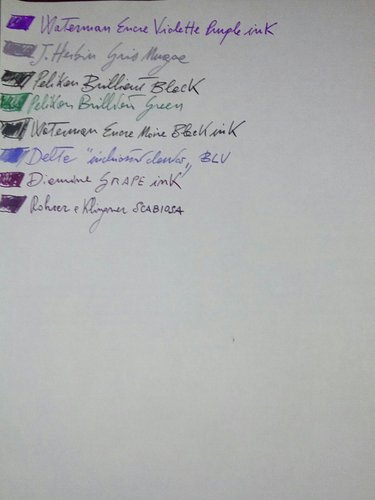 Waterman Encre Violette Purple ink
J. Herbin Gris Nuage
Pelikan Brilliant Black
Pelikan Brilliant Green
Waterman Encre Noire Black ink
Delta BLU
Diamine GRAPE ink
Rohrer e Klingner SCABIOSA